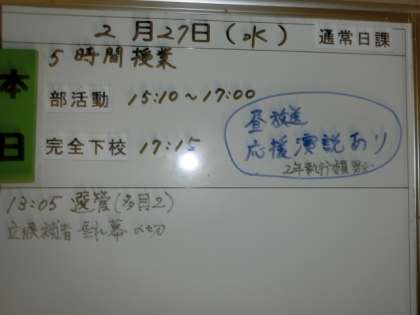 2月27日(水) 通常日課
本日
5時間授業
部活動 15:10～17:00
完全下校 17:15
昼放送
応援演説あり
2年執行部員男子
13:05 選管(多目2)
立候補者 垂れ幕 〆切